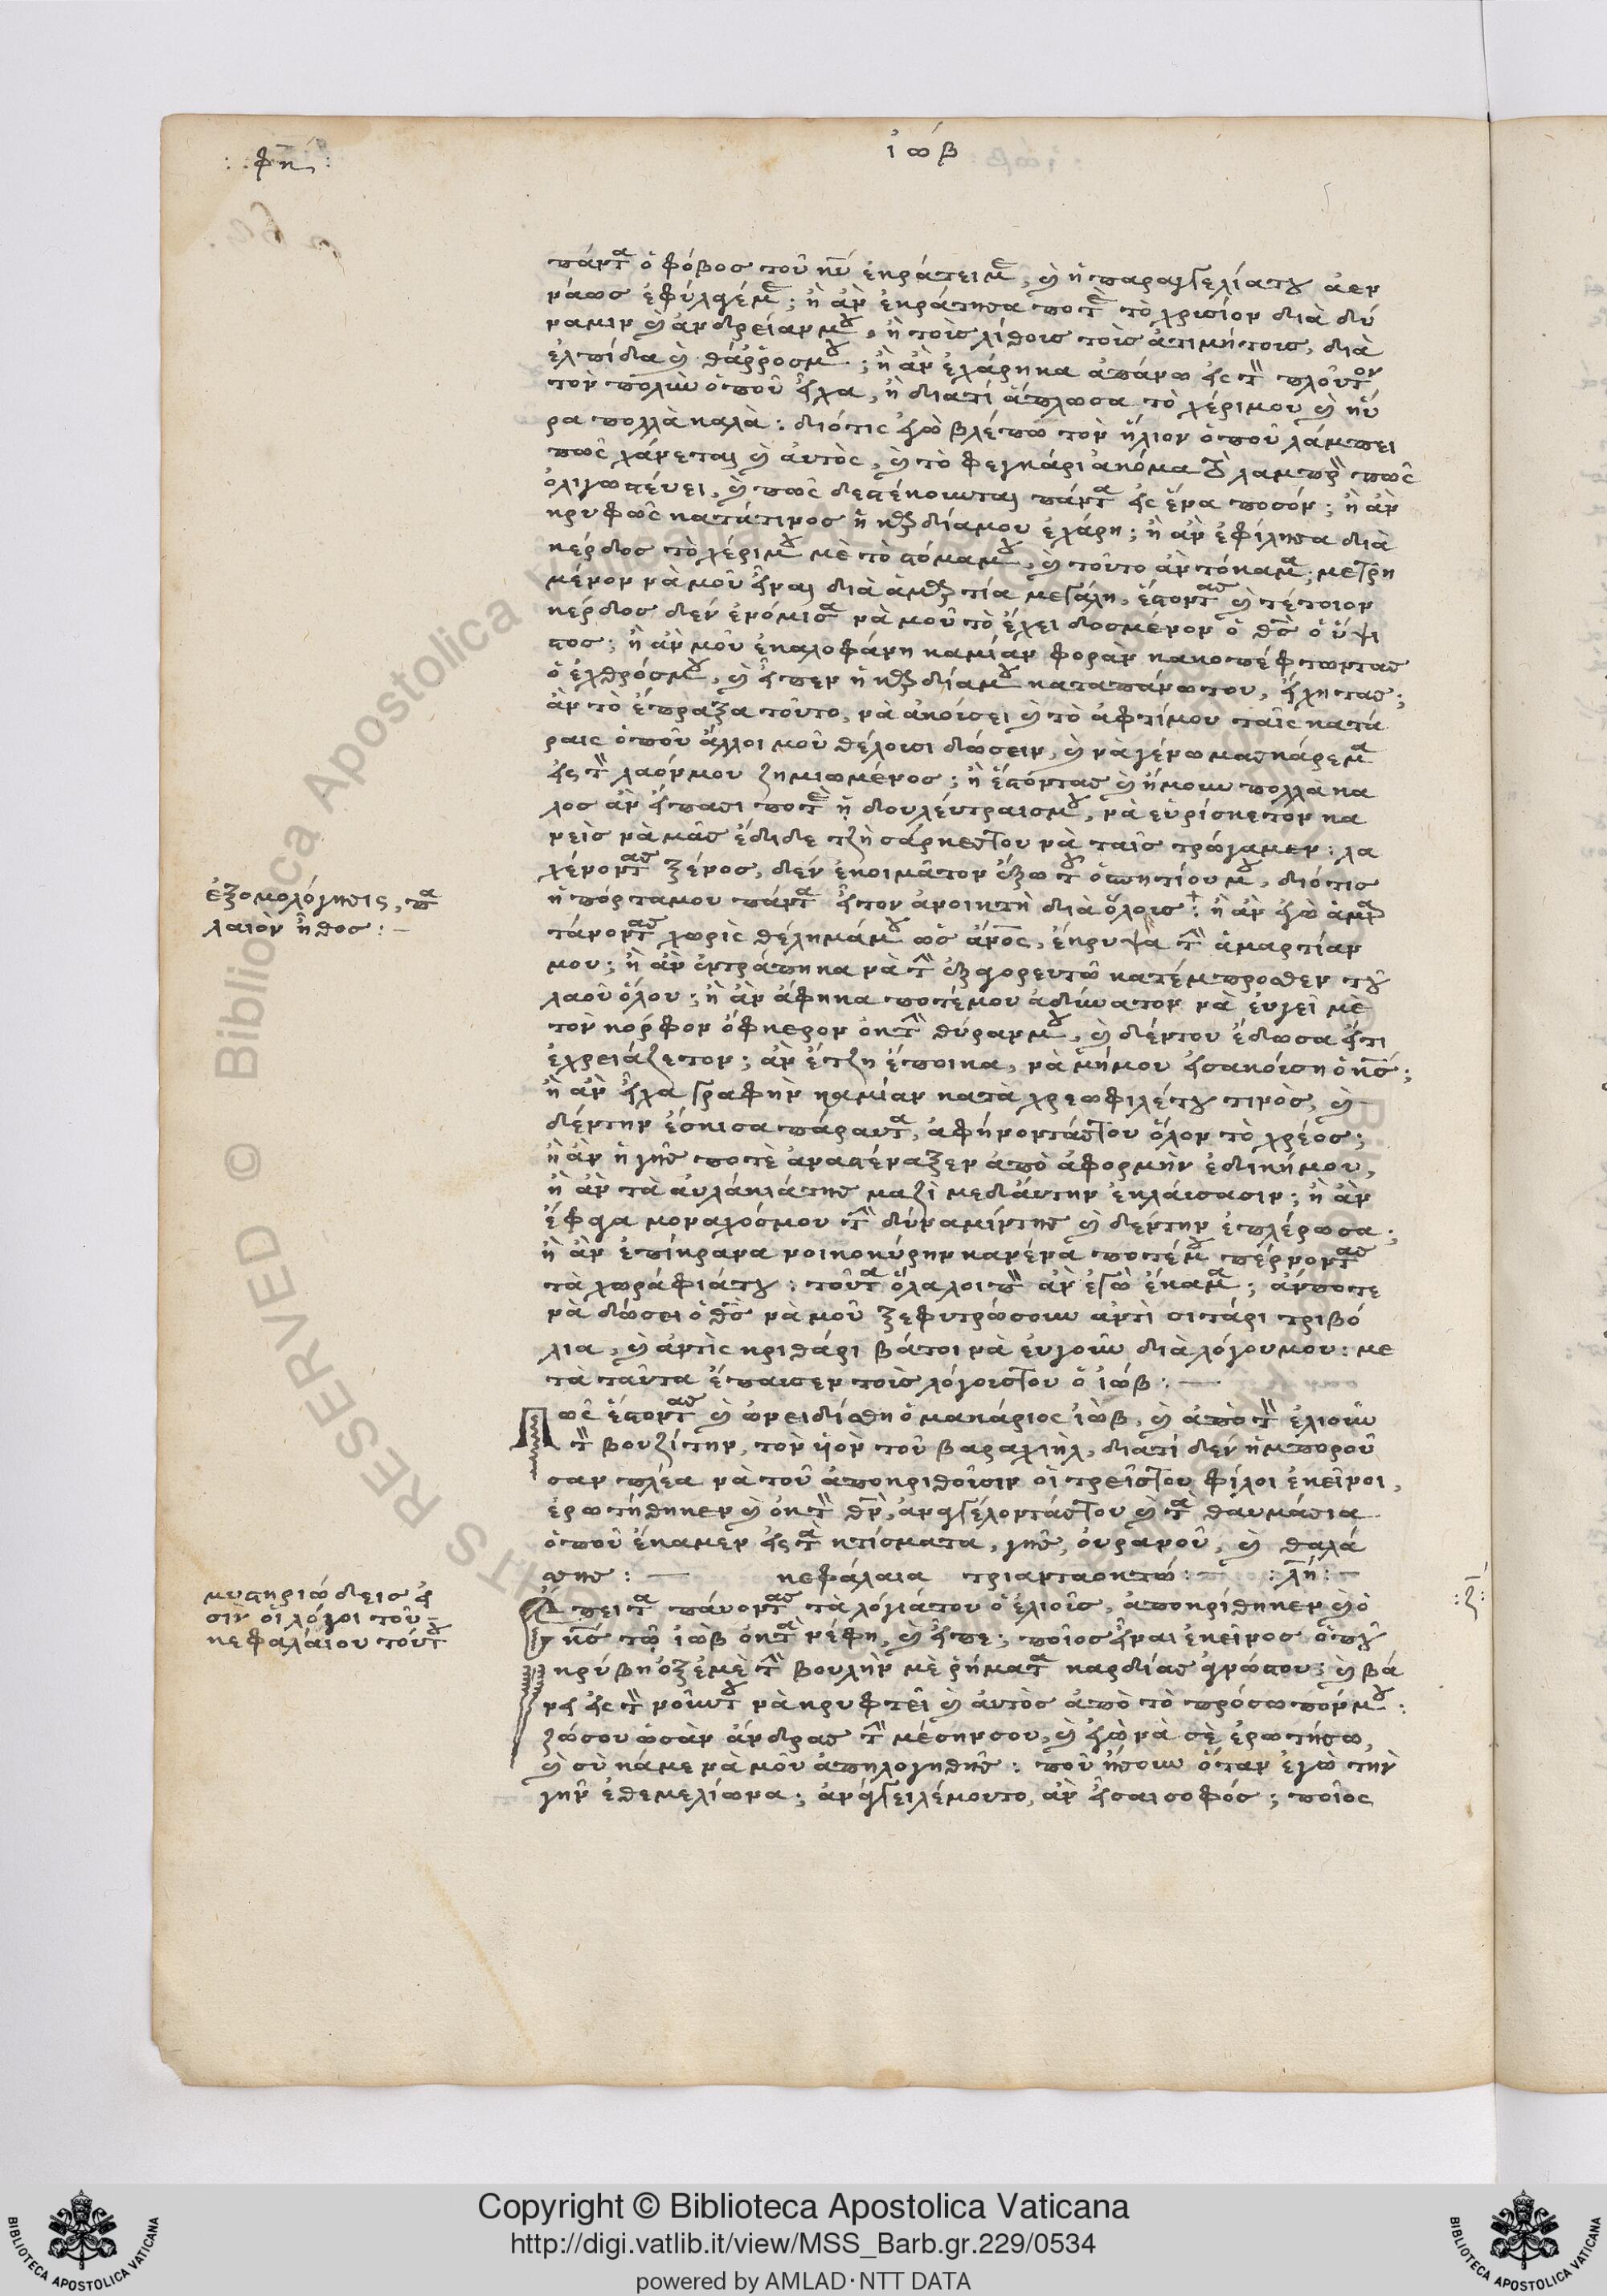 : φκη :
ἰώβ
πάντα ὁ φόβος τοῦ κυ ἐκράτειμε, καὶ ἡ παραγγελίατου ἀεν
νάως ἐφύλαγέμε; ἢ ἂν ἐκράτησα ποτὲ τὸ χρυσίον διὰ δύ
ναμιν καὶ ἀνδρείανμου, ἢ τοῖς λίθοις τοῖς ἀτιμήτοις, διὰ
ἐλπίδα καὶ θάῤῥοσμου; ἢ ἂν ἐχάρηκα ἀπάνω εἰς τὸν πλοῦτον
τὸν πολὺν ὁποῦ εἶχα, ἢ διατί ἅπλωσα τὸ χέριμου καὶ ηὕ
ρα πολλὰ καλὰ: διότις ἐγὼ βλέπω τὸν ἥλιον ὁποῦ λάμπει
πῶς χάνεται καὶ ἀυτὸς, καὶ τὸ φεγκάρι ἀκόμα τὸ λαμπρὸν πῶς
ὀλιγωστέυει, καὶ πῶς δεστέκουνται πάντα εἰς ἕνα ποσόν; ἢ ἂν
κρυφῶς κατάτινος ἡ καρδίαμου ἐχάρη; ἢ ἂν ἐφίλησα διὰ
κέρδος τὸ χέριμου μὲ τὸ στόμαμου, καὶ τοῦτο ἂν τόκαμα; μετρη
μένον νὰ μοῦ εἶναι διὰ ἁμαρτία μεγάλη, ἔστοντας καὶ τέτοιον
κέρδος δεν ἐνόμισα νὰ μοῦ τὸ ἔχει δοσμένον ὁ θς ὁ ὕψι
στος; ἢ ἂν μοῦ ἐκαλοφάνη καμίαν φορὰν κακοπέφτωντας
ὁ ἐχθρόσμου, καὶ εἶπεν ἡ καρδίαμου καταπάνωτου, εἴχητας;
ἂν τὸ ἔπραξα τοῦτο, νὰ ἀκούσει καὶ τὸ ἀφτίμου ταῖς κατά
ραις ὁποῦ ἄλλοι μοῦ θέλουσι δώσειν, καὶ νὰ γένω μασκάρεμα
εἰς τὸν λαόνμου ζημιωμένος; ἢ ἔστόντας καὶ ἤμουν πολλὰ κα
λος ἂν εἴπασι ποτὲ ᾑ δουλέυτραισμου, νὰ εὑρίσκετον κα
νεὶς νὰ μᾶς ἔδιδε τζὴ σάρκεστου νὰ ταῖς τρώγαμεν: λα
χένοντας ξένος, δεν ἐκοιμᾶτον ἔξω τοῦ ὁσπητίουμου, διότις
ἡ πόρταμου πάντα ἦτον ἀνοικτὴ διὰ ὅλους: ἢ ἂν ἐγὼ ἁμαρ
τάνοντας χωρὶς θέλημάμου ὡς ἄνος, ἔκρυψα τὴν ἁμαρτίαν
μου; ἢ ἂν ἐντράπηκα νὰ τὴν ἐξαγορευτῶ κατέμπροσθεν τοῦ
λαοῦ ὅλου; ἢ ἂν ἄφηκα ποτέμου ἀδύνατον νὰ ἐυγεῖ μὲ
τὸν κόρφον ὄφκερον ἐκ τὴν θύρανμου, καὶ δέντου ἔδωσα εἴτι
ἐχρειάζετον; ἂν ἔτζη ἔποικα, νὰ μήμου εἰσακούση ὁ κς;
ἢ ἂν εἶχα γραφὴν καμίαν κατὰ χρεωφιλέτου τινὸς, καὶ
δέντην ἔσκισα πάραυτα, ἀφήνοντάστου ὅλον τὸ χρέος;
ἢ ἂν ἡ γῆς ποτὲ ἀναστέναξεν ἀπὸ ἀφορμὴν ἐδικήμου,
ἢ ἂν τὰ ἀυλάκιάτης μαζὶ μεδἄυτην ἐκλάυσασιν; ἢ ἂν
ἔφαγα μοναχόσμου τὴν δύναμίντης καὶ δέντην ἐπλέρωσα;
ἢ ἂν ἐπίκρανα νοικοκύρην κανένα ποτέμου πέρνοντας
τὰ χωράφιάτου: τοῦτα ὅλαλοιπὸν ἂν ἐγὼ ἔκαμα; ἄνποτε
νὰ δώσει ὁ θς νὰ μοῦ ξεφυτρώσουν ἀντὶ σιτάρι τριβό
λια, καὶ ἀντὶς κριθάρι βάτοι νὰ ἐυγοῦν διὰ λόγουμου: με
τὰ ταῦτα ἔπαυσεν τοὺς λόγουστου ὁ ἰώβ: —
Πῶς ἔστοντας καὶ ὠνειδίσθη ὁ μακάριος ἰὼβ, καὶ ἀπὸ τὸν ἐλιοὺν
τὸν βουζίτην, τὸν ὑὸν τοῦ βαραχιὴλ, διατί δεν ἠμποροῦ
σαν πλέα νὰ τοῦ ἀποκριθοῦσιν οἱ τρεῖστου φίλοι ἐκεῖνοι,
ἐρωτήθηκεν καὶ ἐκ τὸν θν, ἀναγγέλοντάστου καὶ τὰ θαυμάσια
ὁποῦ ἔκαμεν εἰς τὰ κτίσματα, γῆς, ὀυρανοῦ, καὶ θαλά
σσης: — κεφάλαια τριανταοκτώ: — : λη : —
Ἔπειτα πάυοντας τὰ λόγιάτου ὁ ἐλιοῦς, ἀποκρίθηκεν καὶ ὁ
κς τῷ ἰὼβ ἐκ τὰ νέφη, καὶ εἶπε; ποῖος εἶναι ἐκεῖνος ὁποῦ
κρύβη ὀξἐμὲ τὴν βουλὴν μὲ ῥήματα καρδίας ἀγνώστου; καὶ βά
νει εἰς τὸν νοῦντου νὰ κρυφτεῖ καὶ ἀυτὸς ἀπὸ τὸ πρόσωπόνμου:
ζώσου ὡσὰν ἄνδρας τὴν μέσηνσου, καὶ ἐγὼ νὰ σὲ ἐρωτήσω,
καὶ σὺ κάμε νὰ μοῦ ἀπηλογηθῆς: ποῦ ἤσουν ὅταν ἐγὼ τὴν
γῆν ἐθεμελίωνα; ἀνάγγειλέμουτο, ἂν εἶσαι σοφός; ποῖος
ἐξομολόγησις, πα
λαιὸν ἦθος: —
μυστηριώδεις εἰ
σὶν οἱ λόγοι τοῦ
κεφαλαίου τούτου
: ζ :
Copyright © Biblioteca Apostolica Vaticana
http://digi.vatlib.it/view/MSS_Barb.gr.229/0534
powered by AMLAD·NTT DATA
BIBLIOTECA APOSTOLICA VATICANA
BIBLIOTECA APOSTOLICA VATICANA